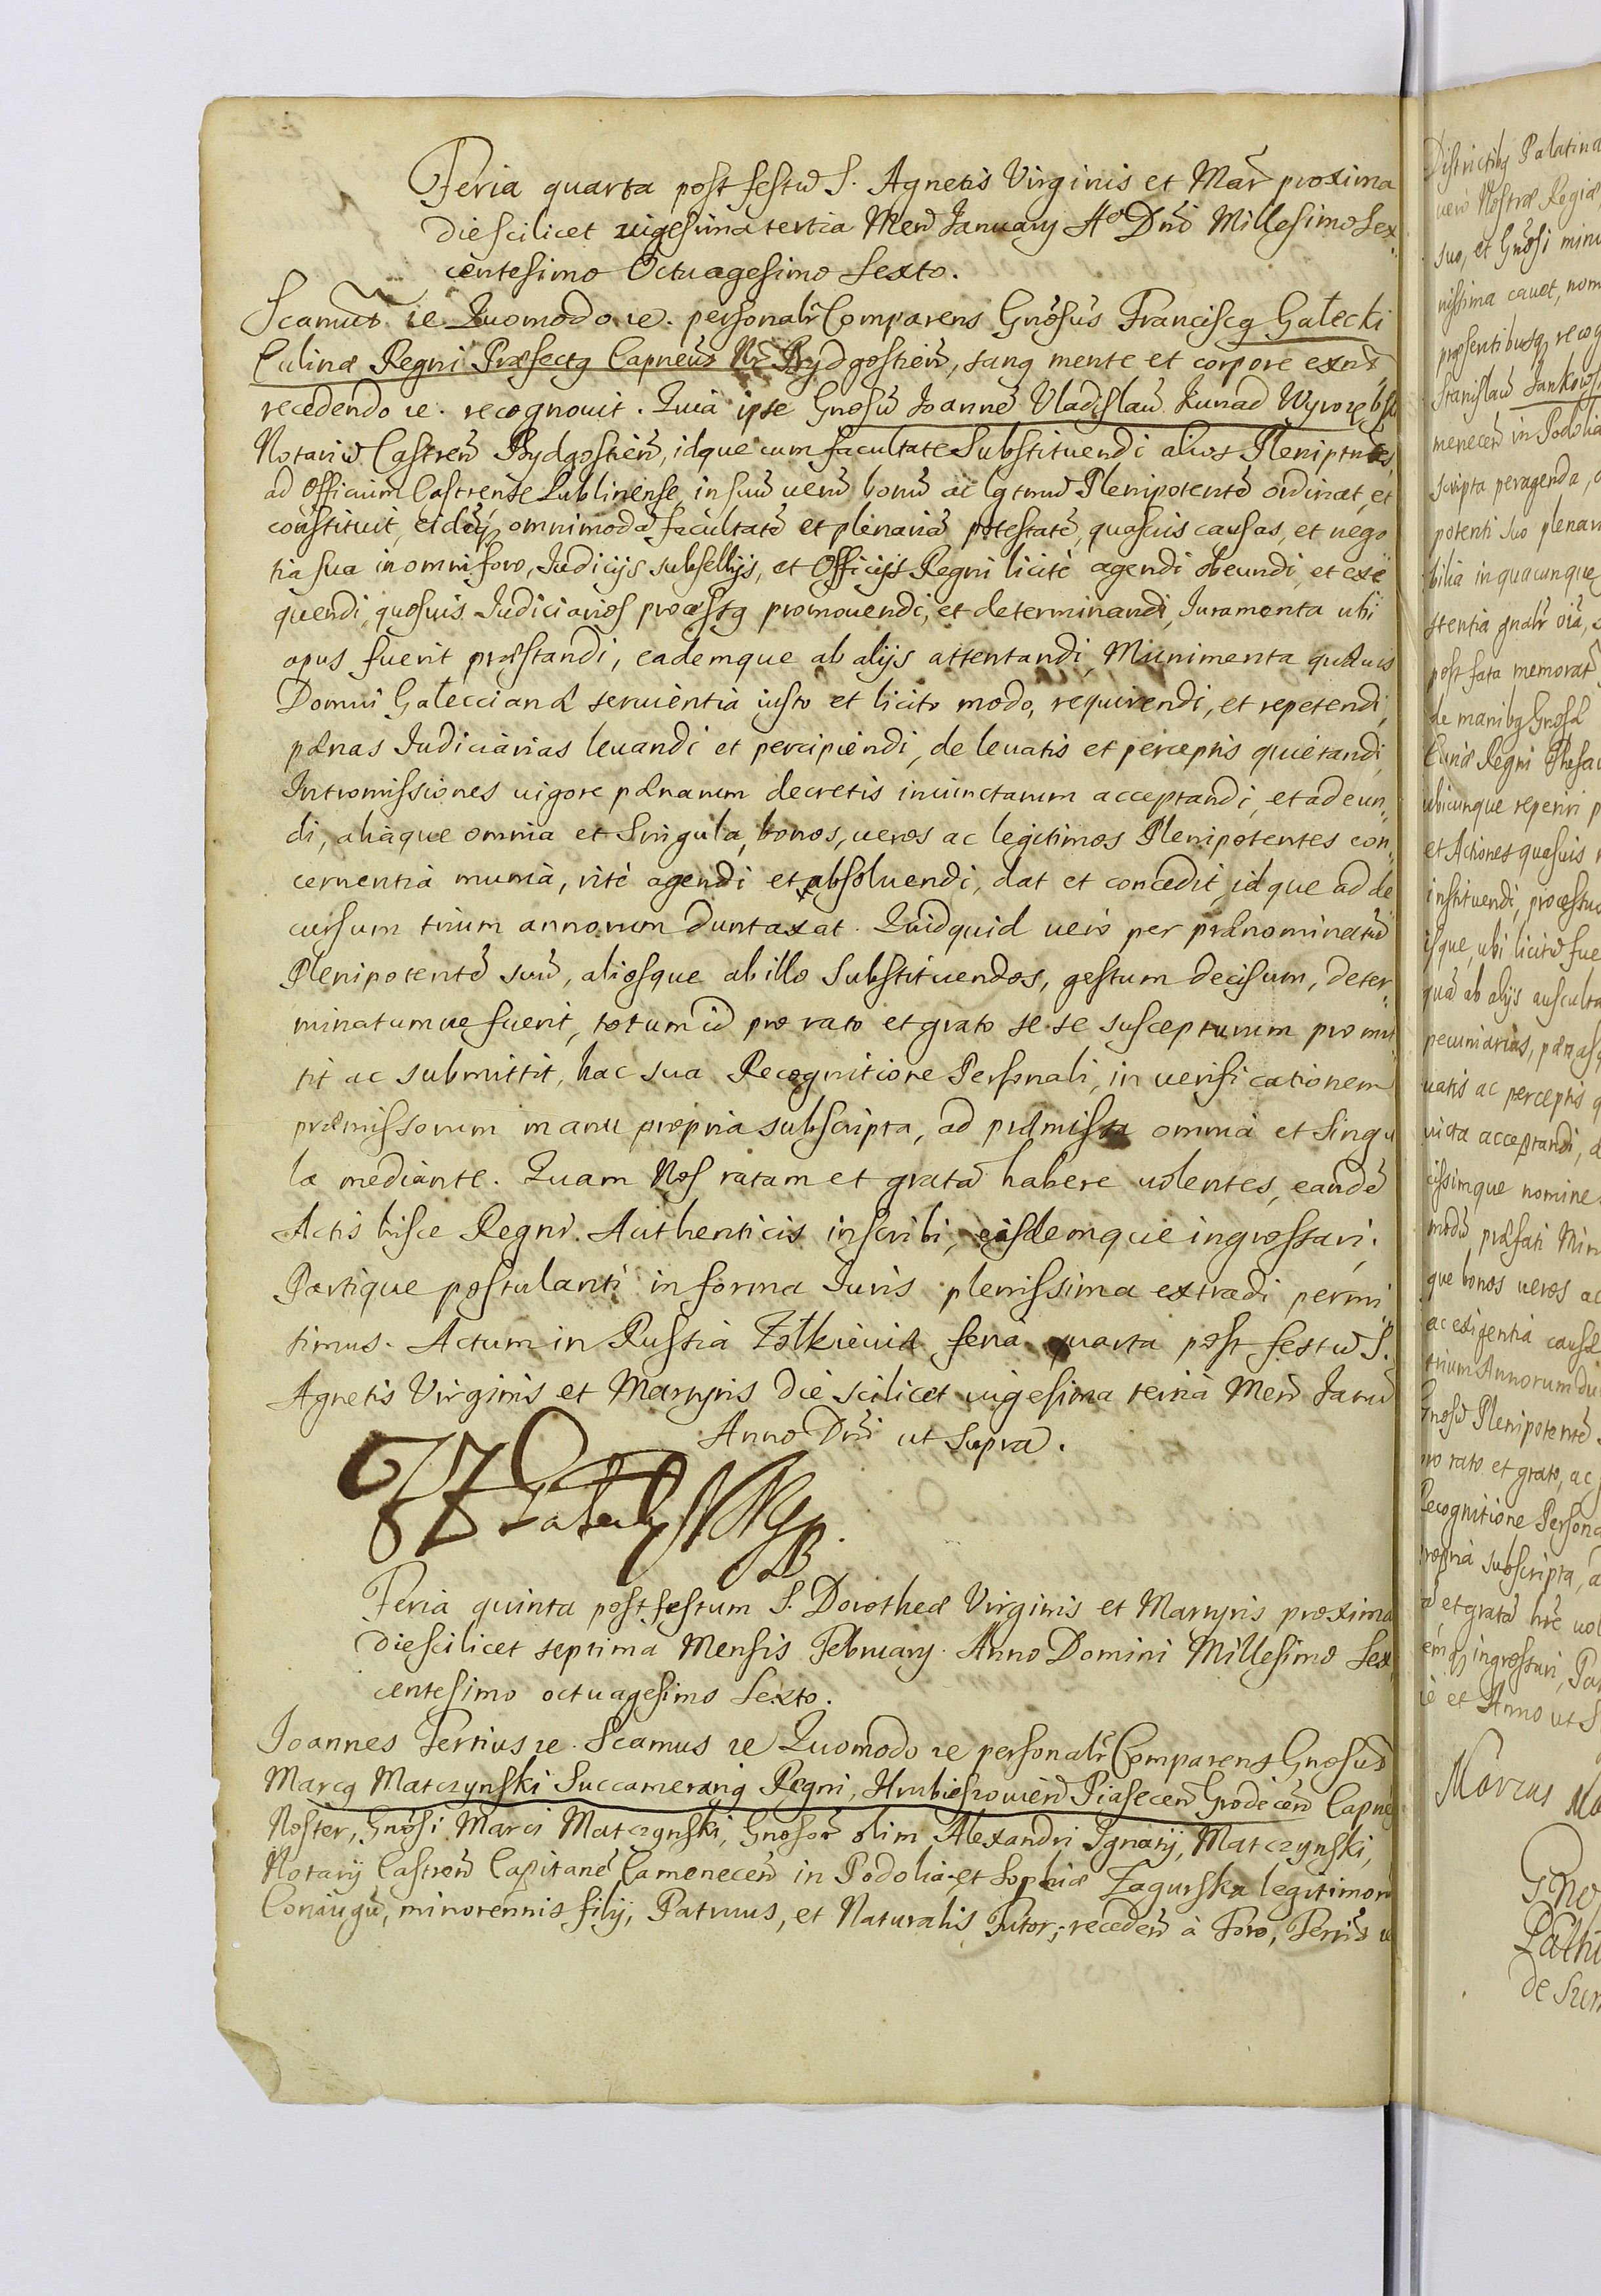 Feria quarta post festũ S. Agnetis Virginis et Mar̃ proxima
die scilicet uigesima tertia Meñ January Aº Dñi Millesimo Sex„
centesimo Octuagesimo Sexto.
Scamus ꝛc Quomodo ꝛc. personalr̃ Comparens Gnõsus Franciscꝰ Gałecki
Culinæ Regni Præfectꝰ Capneus Nr̃ Bydgostieñ, sanꝰ mente et corpore exñs
recedendo ꝛc. recognouit. Quia ipse Gnõsũ Joannẽ Vladislaũ Kunad Wyrozębski
Notariũ Castreñ Bydgostieñ, idque cum facultate Substituendi alios Plenipñtes,
ad Officium Castrense Lublinense, in suũ uerũ bonũ ac lgtmũ Plenipotentẽ ordinat, et
constituit, eidẽqꝫ omnimodã facultatẽ et plenariã potestatẽ, quasuis causas, et nego
tia sua in omni foro, Judicijs subsellijs, et Officijs Regni licitè agendi obeundi, et exe
quendi, quosuis Judiciarios processꝰ promouendi, et determinandi, Juramenta ubi
opus fuerit præstandi, eademque ab alijs attentandi, Munimenta quæuis
Domui Gałeccianæ seruientia iusto et licito modo, requirendi, et repetendi,
pænas Judiciarias leuandi et percipiendi, de leuatis et perceptis quietandi,
Intromissiones uigore pænarum decretis iniunctarum acceptandi, et adeun„
di, aliaque omnia et Singula, bonos, ueros ac legitimos Plenipotentes con„
cernentia munia, ritè agendi et absoluendi, dat et concedit, idque ad de
cursum trium annorum duntaxat. Quidquid uerò per prænominatũ
Plenipotentẽ suũ, aliosque ab illo Substituendos, gestum decisum, deter„
minatumue fuerit, totum id pro rato et grato se se suscepturum promit
tit ac submittit, hac sua Recognitione Personali, in uerificationem
præmissorum manu propria subscripta, ad præmissa omnia et Singu
la mediante. Quam Nos ratam et gratã habere uolentes, eandẽ
Actis hisce Regni Authenticis inscribi, eisdemque ingrossari,
Partique postulanti in forma Juris plenissima extradi permi„
timus. Actum in Russia Zołkieuiæ feria quarta post festũ S.
Agnetis Virginis et Martyris die scilicet uigesima tertia Meñ Januũ
Anno Dñi ut Supra.
Feria quinta post festum S. Dorotheæ Virginis et Martyris proxima
die scilicet septima Mensis February Anno Domini Millesimo Sex
centesimo octuagesimo Sexto.
Joannes Tertius ꝛc. Scamus ꝛc Quomodo ꝛc personalr̃ Comparens Gnõsus
Marcꝰ Matczynski Succamerariꝰ Regni, Hrubieszouieñ Piaseceñ Grodeceñ Capneꝰ
Noster, Gnõsi Marci Matczynski, Gnõsor̃ olim Alexandri Ignatij, Matczynski,
Notarij Castreñ Capitaneꝰ Cameneceñ in Podolia et Sophiæ Zagurska legitimorũ
Coniugũ, minorennis filij, Patruus, et Naturalis Tutor, recedeñ à Foro, Terris
Districtibꝰ Palatina
uerò Nostræ Regiæ
suo, et Gnõsi mino
nissima cauet, nom
præsentibusqꝫ recog
Stanislaũ Jankows
meneceñ in Podolia
scripta peragenda,
potenti suo plenari
bilia in quacunque
stentia gnalr̃ oĩa,
post fata memorat
de manibꝰ Gnõsæ
Curiæ Regni Thesau
ubicunque reperiri p
et Actiones quasuis
instituendi, processus
isque, ubi licitũ fue
quã ab alijs ausculta
pecuniarias, pænasq
uatis ac perceptis q
uicta acceptandi,
cissimque nomine
modũ præfati Min
que bonos ueros ac
ac exigentia causæ
trium Annorum du
Gnõsũ Plenipotentẽ
pro rato et grato, ac
Recognitione Persona
propria subscripta, a
et gratã hr̃e uol
emqꝫ ingrossari, Par
ie et Anno ut S
Marcus Ma